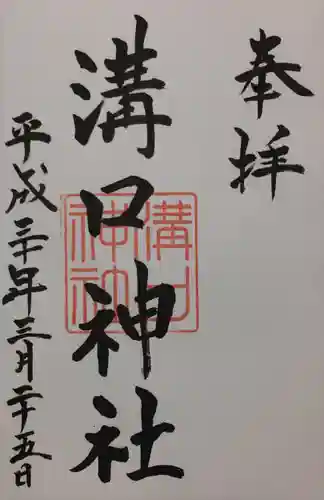 奉拝
溝口神社
溝口
神社
平成三十年三月二十五日